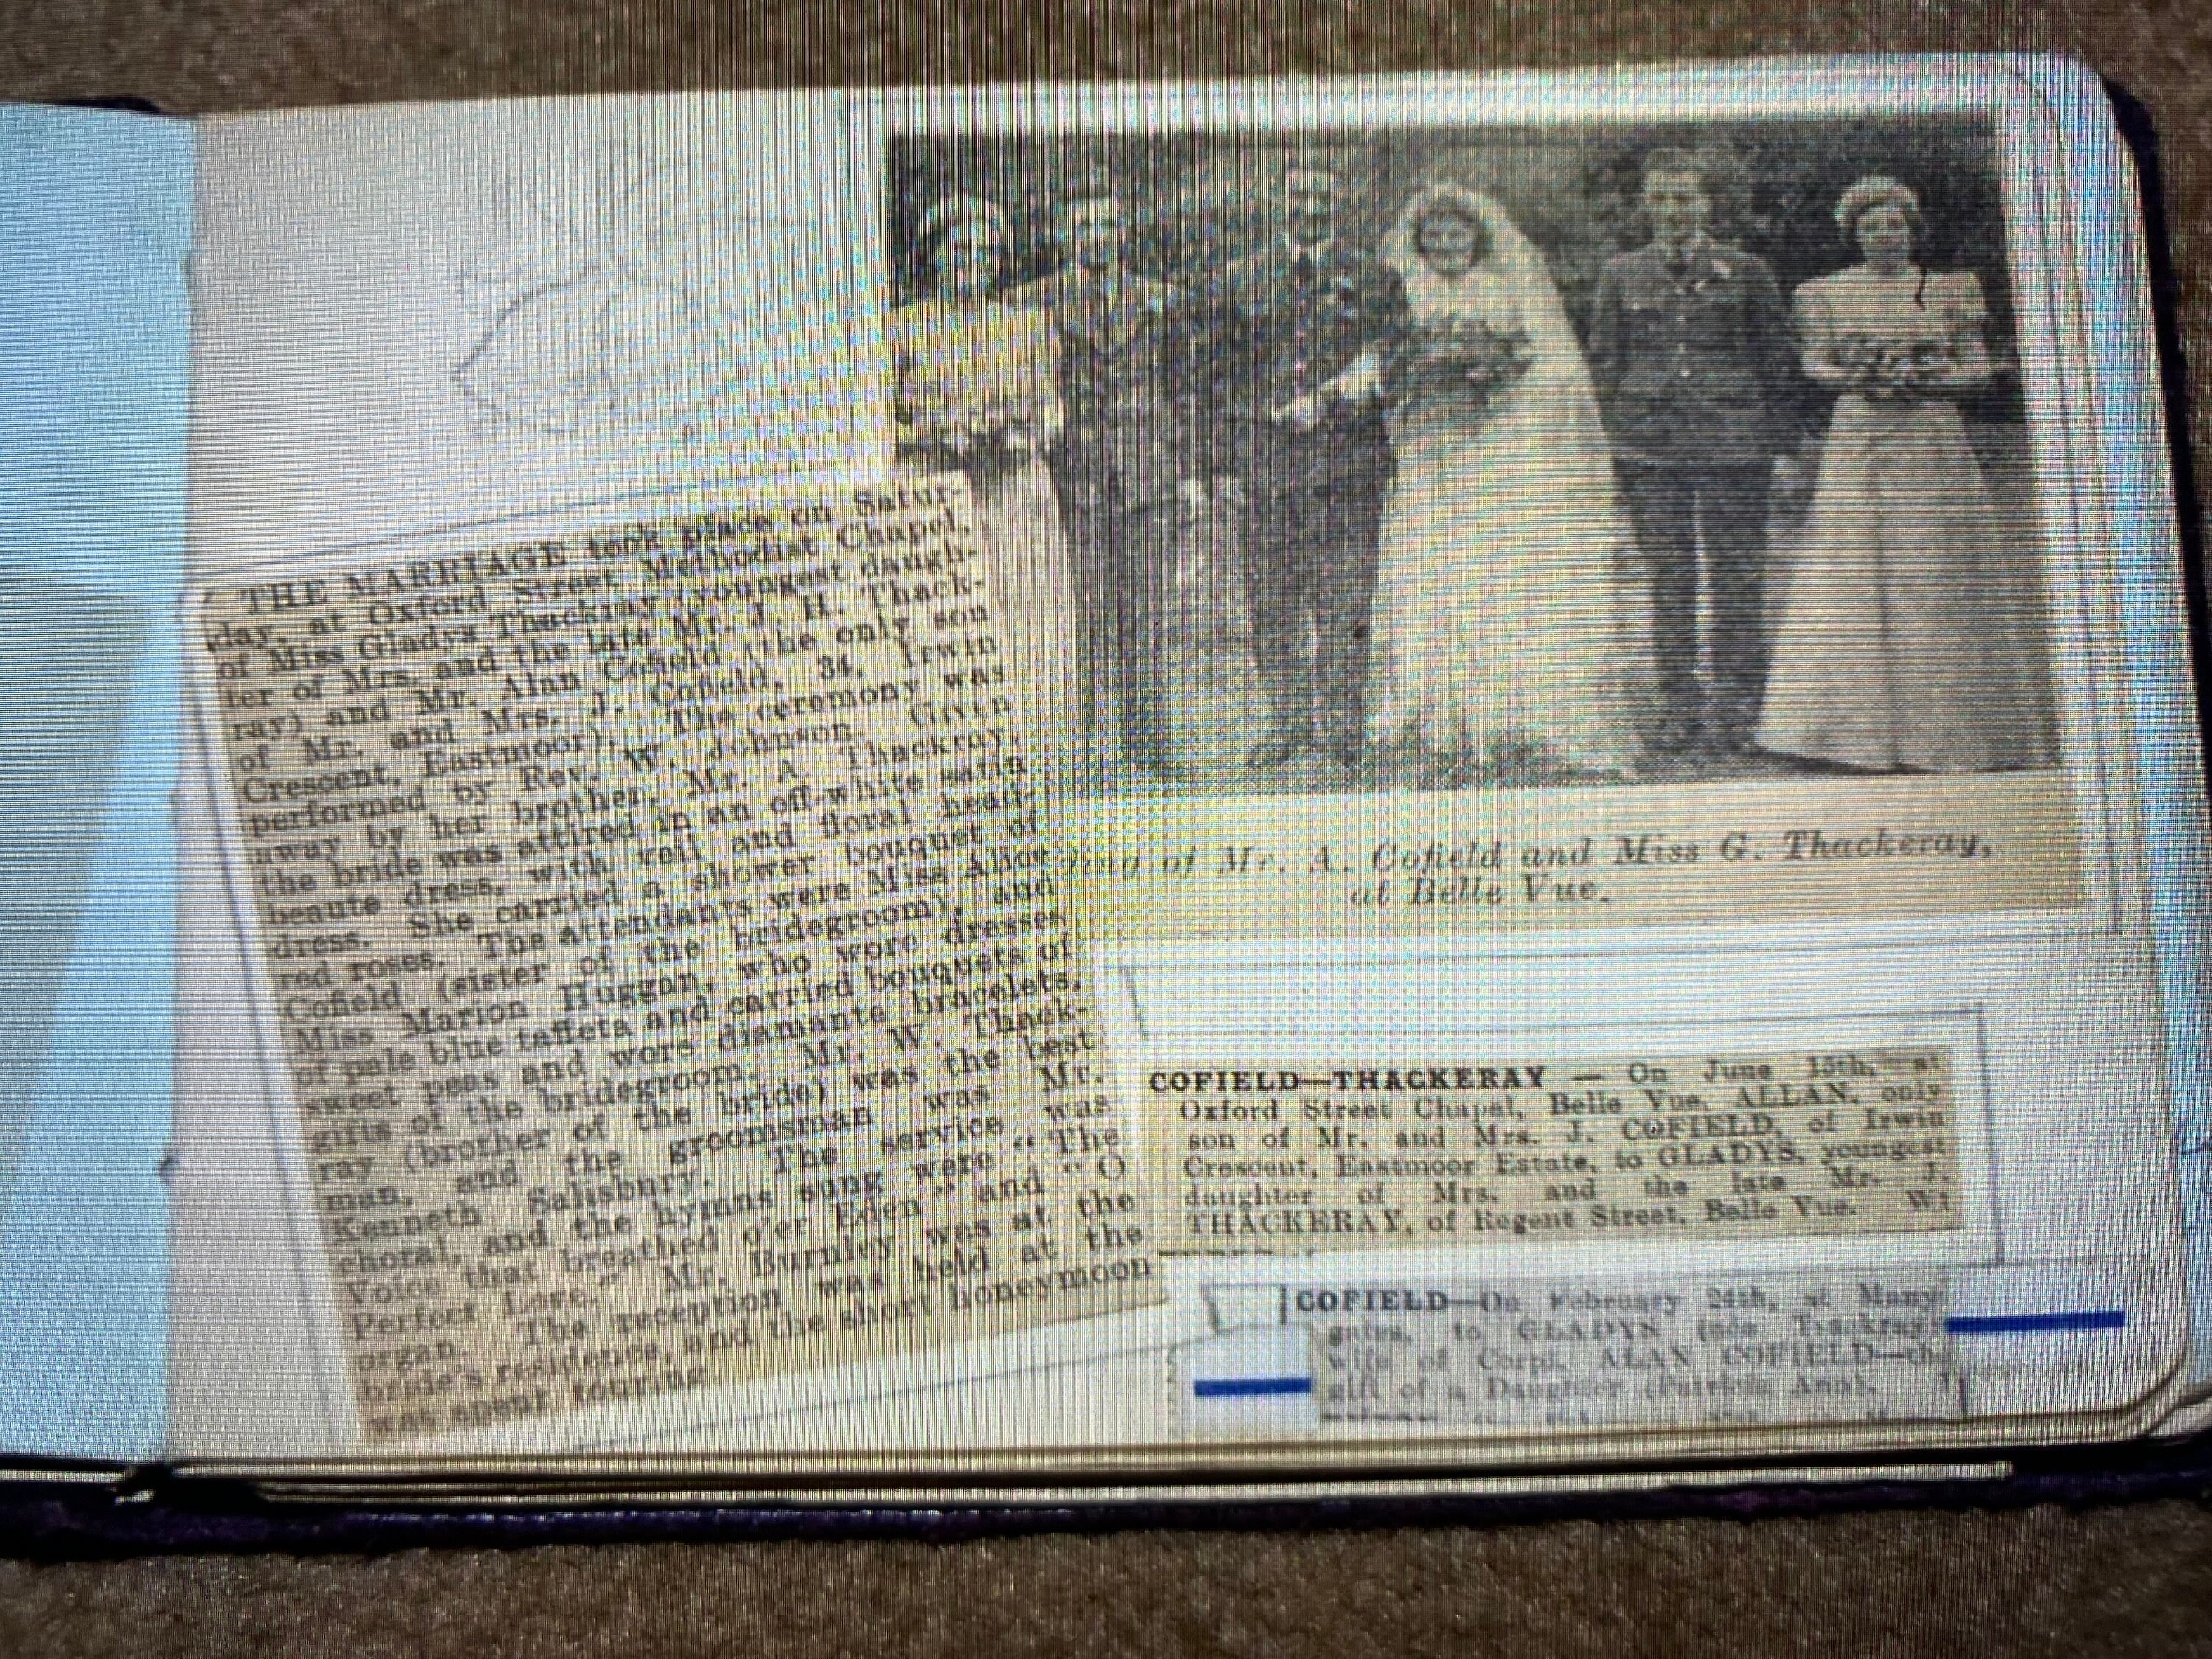 THE MARRIAGE took place on Satur-
day, at Oxford Street Methodist Chapel,
of Miss Gladys Thackray (youngest daugh-
ter of Mrs. and the late Mr. J. H. Thack-
ray) and Mr. Alan Cofield (the only son
of Mr. and Mrs. J. Cofield, 34, Irwin
Crescent, Eastmoor). The ceremony was
performed by Rev. W. Johnson. Given
away by her brother, Mr. A. Thackray,
the bride was attired in an off-white satin
beaute dress, with veil and floral head-
dress. She carried a shower bouquet of
red roses. The attendants were Miss Alice
Cofield (sister of the bridegroom), and
Miss Marion Huggan, who wore dresses
of pale blue taffeta and carried bouquets of
sweet peas and wore diamante bracelets,
gifts of the bridegroom. Mr. W. Thack-
ray (brother of the bride) was the best
man, and the groomsman was Mr.
Kenneth Salisbury. The service was
choral, and the hymns sung were "The
Voice that breathed o'er Eden" and "O
Perfect Love." Mr. Burnley was at the
organ. The reception was held at the
bride's residence, and the short honeymoon
was spent touring.
ding of Mr. A. Cofield and Miss G. Thackeray,
at Belle Vue.
COFIELD—THACKERAY — On June 15th, at
Oxford Street Chapel, Belle Vue, ALLAN, only
son of Mr. and Mrs. J. COFIELD, of Irwin
Crescent, Eastmoor Estate, to GLADYS, youngest
daughter of Mrs. and the late Mr. J.
THACKERAY, of Regent Street, Belle Vue. W1
COFIELD—On February 24th, at Many
gates, to GLADYS (née Thackray)
wife of Corpl. ALAN COFIELD—the
gift of a Daughter (Patricia Ann).